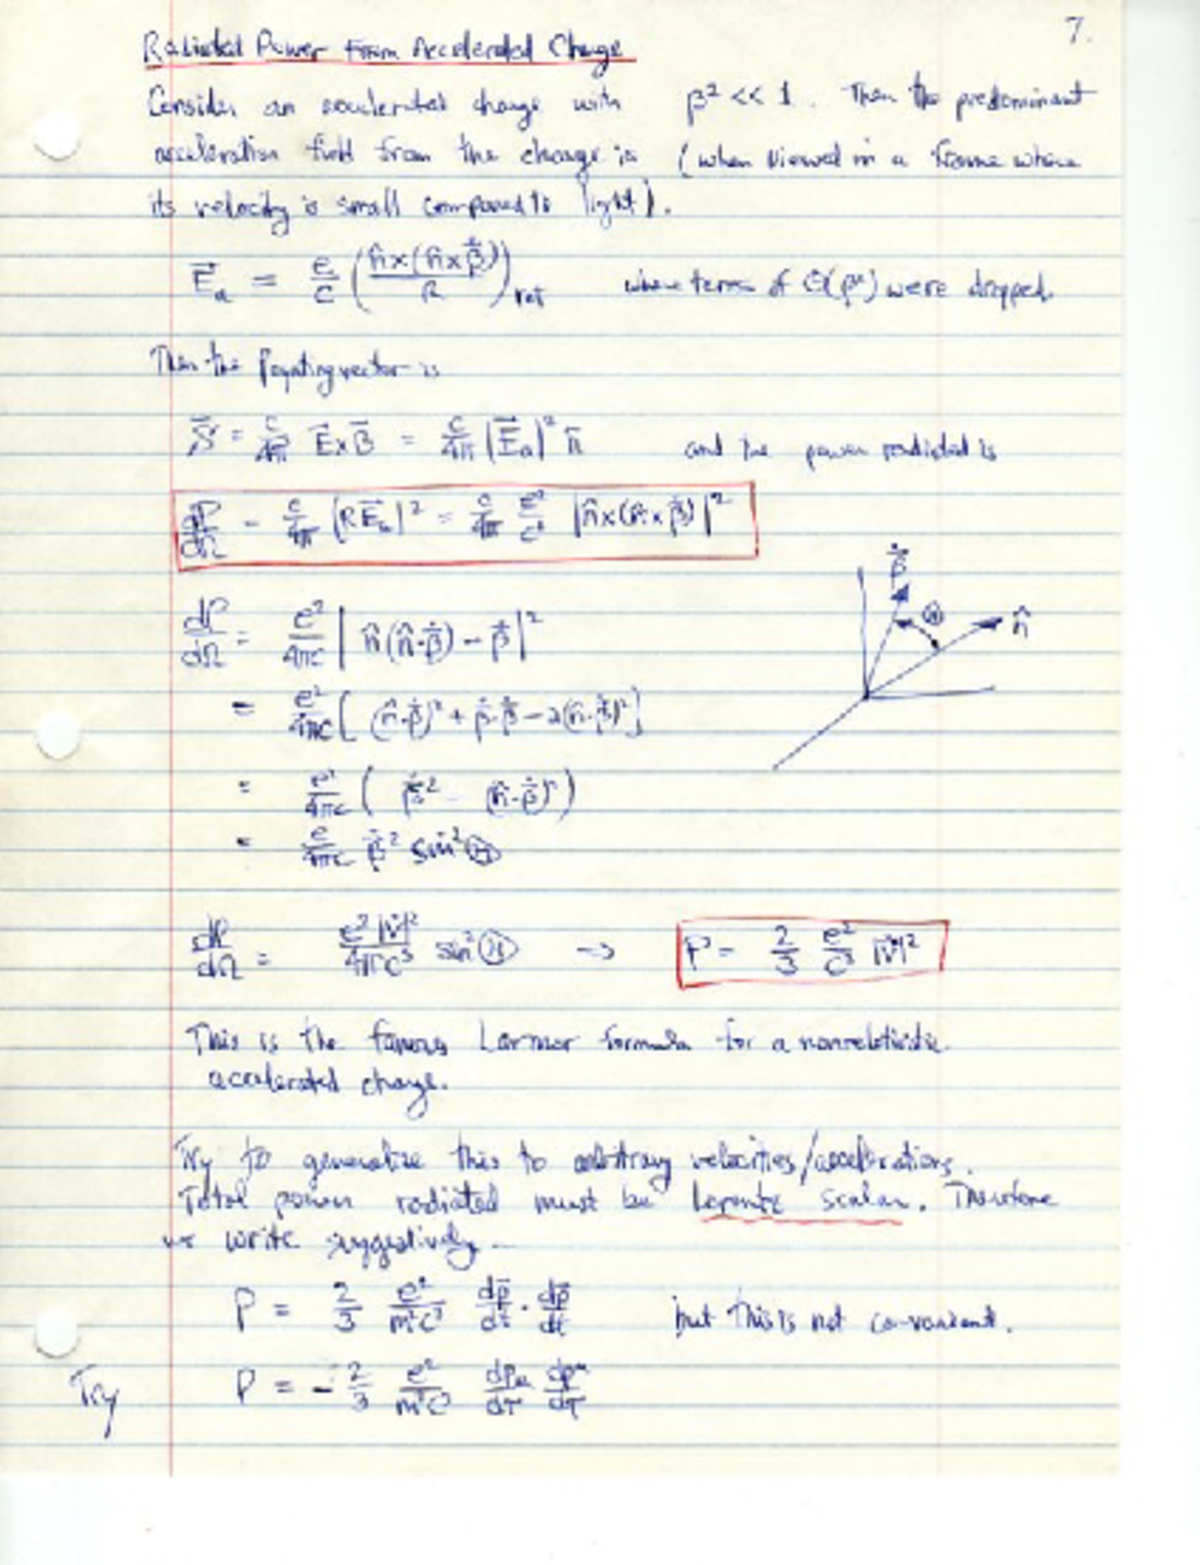 7.
Radiated Power From Accelerated Charge
Consider an accelerated charge with β² << 1. Then the predominant
acceleration field from the charge is (when viewed in a frame where
its velocity is small compared to light).
E⃗ₐ = e/c ( n̂×(n̂×β⃗̇) / R )ret where terms of O(β²) were dropped.
Then the Poynting vector is
S⃗ = c/4π E⃗×B⃗ = c/4π |E⃗ₐ|² n̂ and the power radiated is
dP/dΩ = c/4π |RE⃗ₐ|² = c/4π e²/c² |n̂×(n̂×β⃗̇)|²
β⃗̇
Θ
n̂
dP/dΩ = e²/4πc | n̂(n̂·β⃗̇) - β⃗̇ |²
= e²/4πc [ (n̂·β⃗̇)² + β⃗̇·β⃗̇ - 2(n̂·β⃗̇)² ]
= e²/4πc ( β̇² - (n̂·β⃗̇)² )
= e/4πc β̇² sin²Θ
dP/dΩ = e²|v̇|²/4πc³ sin²Θ => P = 2/3 e²/c³ |v̇|²
This is the famous Larmor formula for a nonrelativistic
accelerated charge.
Try to generalize this to arbitrary velocities/accelerations.
Total power radiated must be Lorentz scalar. Therefore
we write suggestively
P = 2/3 e²/m²c³ dp⃗/dt · dp⃗/dt but this is not co-variant.
Try P = - 2/3 e²/m²c³ dpμ/dτ dp^μ/dτ